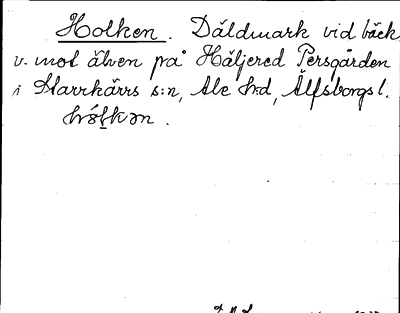 Holken. Dåldmark vid bäck
v. mot älven på Häljered Persgården
i Starrkärrs s:n, Ale hd, Älfsborgs l.
hólkən.